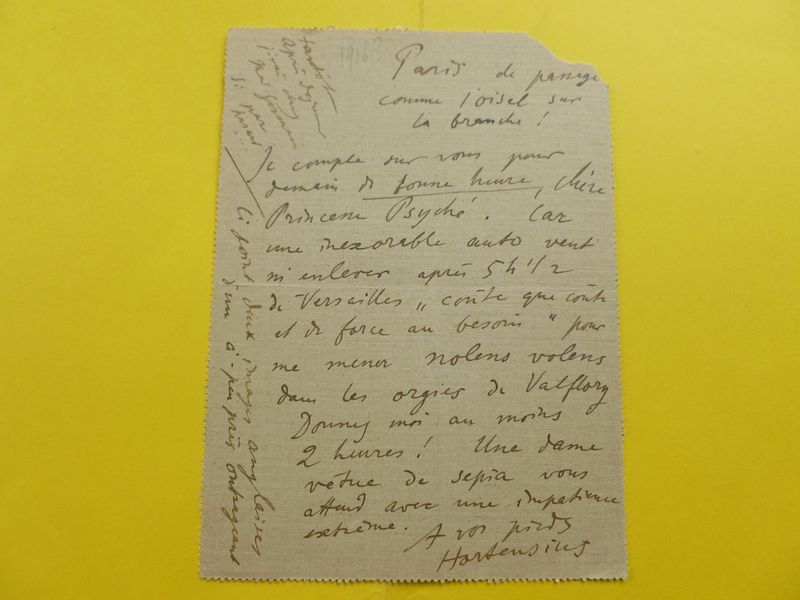 1916?
Paris de passage
comme l'oisel sur
la branche !
Je compte sur vous pour
demain de bonne heure, chère
Princesse Psyché. Car
une inexorable auto veut
m'enlever après 5h 1/2
de Versailles „ coûte que coûte
et de force au besoin " pour
me mener nolens volens
dans les orgies de Valflory
Donnez moi au moins
2 heures ! Une dame
vêtue de sepia vous
attend avec une impatience
extrême.
A vos pieds
Hortensius
Ci joint deux images anglaises
d'un à-peu près outrageant
tantôt
après
j'irai